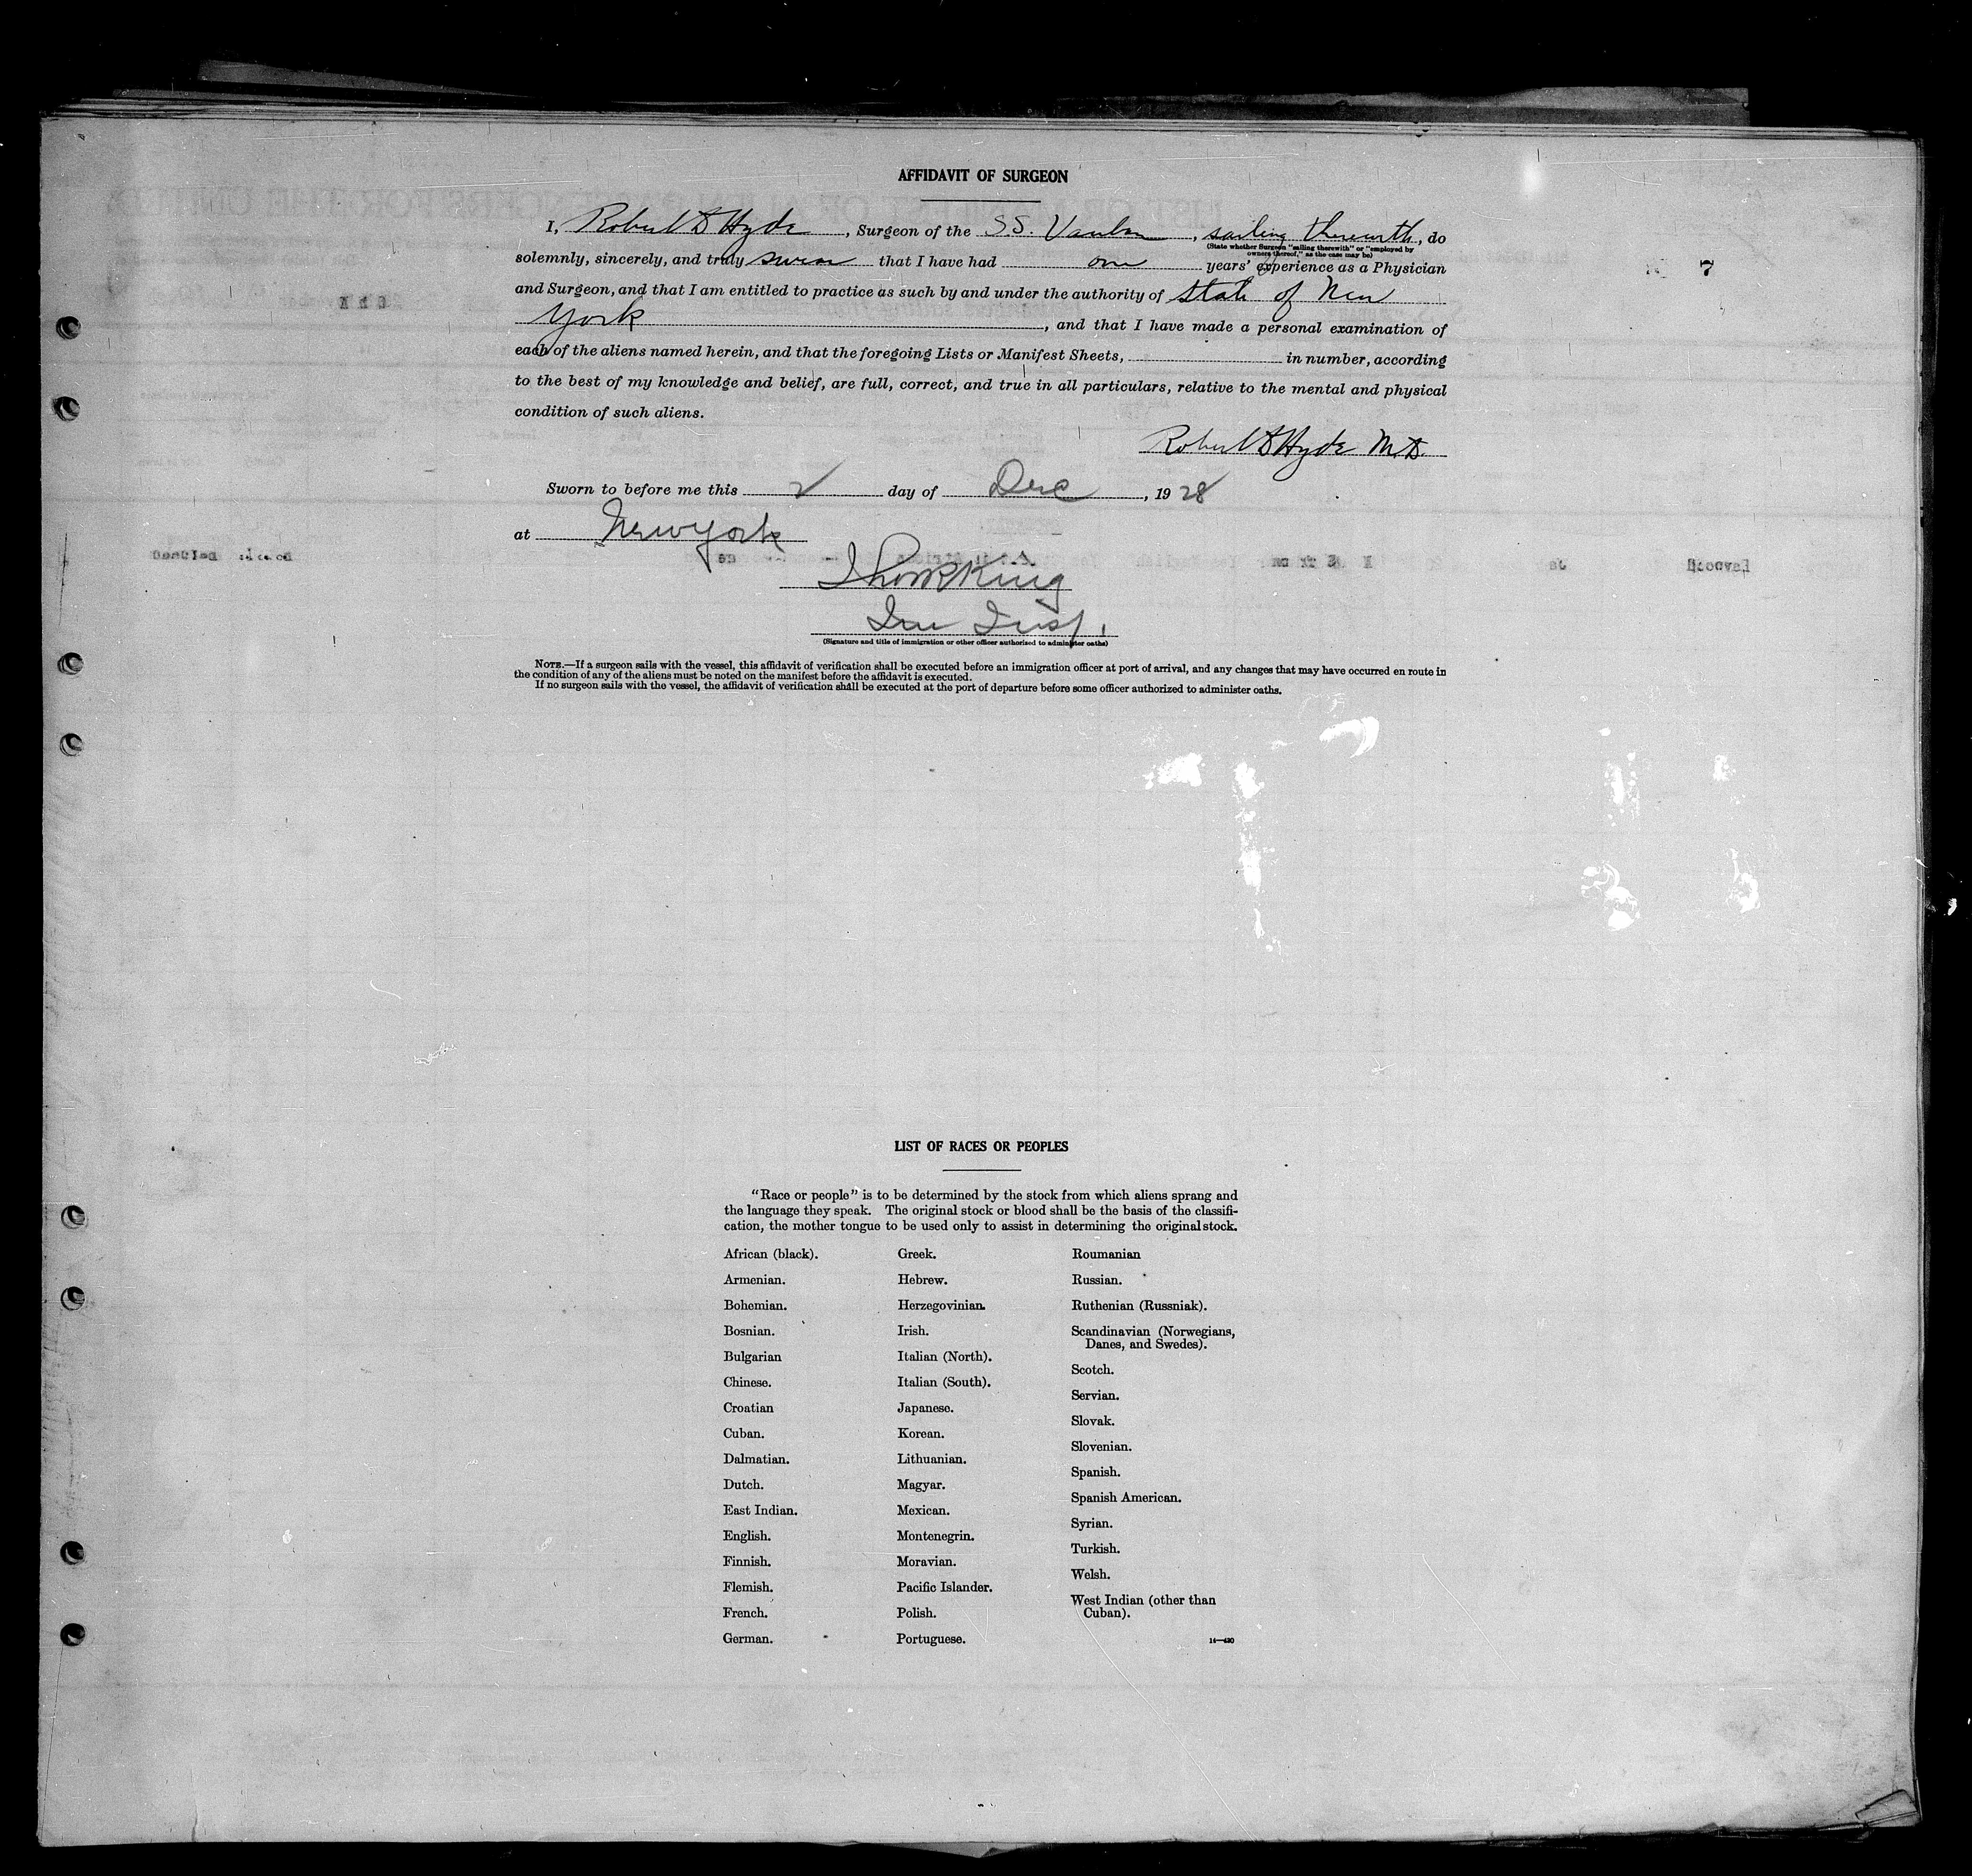 AFFIDAVIT OF SURGEON
I, Robert D Hyde, Surgeon of the S.S. , sailing therewith, do
(State whether Surgeon "sailing therewith" or "employed by
owners thereof," as the case may be)
solemnly, sincerely, and truly swear that I have had one years' experience as a Physician
and Surgeon, and that I am entitled to practice as such by and under the authority of State of New
York, and that I have made a personal examination of
each of the aliens named herein, and that the foregoing Lists or Manifest Sheets, in number, according
to the best of my knowledge and belief, are full, correct, and true in all particulars, relative to the mental and physical
condition of such aliens.
Robert D Hyde M.D.
Sworn to before me this 2 day of Dec, 1928
at New York
King
Imm Insp.
(Signature and title of immigration or other officer authorized to administer oaths)
NOTE.—If a surgeon sails with the vessel, this affidavit of verification shall be executed before an immigration officer at port of arrival, and any changes that may have occurred en route in
the condition of any of the aliens must be noted on the manifest before the affidavit is executed.
If no surgeon sails with the vessel, the affidavit of verification shall be executed at the port of departure before some officer authorized to administer oaths.
7
LIST OF RACES OR PEOPLES
"Race or people" is to be determined by the stock from which aliens sprang and
the language they speak. The original stock or blood shall be the basis of the classifi-
cation, the mother tongue to be used only to assist in determining the original stock.
African (black).
Armenian.
Bohemian.
Bosnian.
Bulgarian
Chinese.
Croatian
Cuban.
Dalmatian.
Dutch.
East Indian.
English.
Finnish.
Flemish.
French.
German.
Greek.
Hebrew.
Herzegovinian.
Irish.
Italian (North).
Italian (South).
Japanese.
Korean.
Lithuanian.
Magyar.
Mexican.
Montenegrin.
Moravian.
Pacific Islander.
Polish.
Portuguese.
Roumanian
Russian.
Ruthenian (Russniak).
Scandinavian (Norwegians,
Danes, and Swedes).
Scotch.
Servian.
Slovak.
Slovenian.
Spanish.
Spanish American.
Syrian.
Turkish.
Welsh.
West Indian (other than
Cuban).
14—430